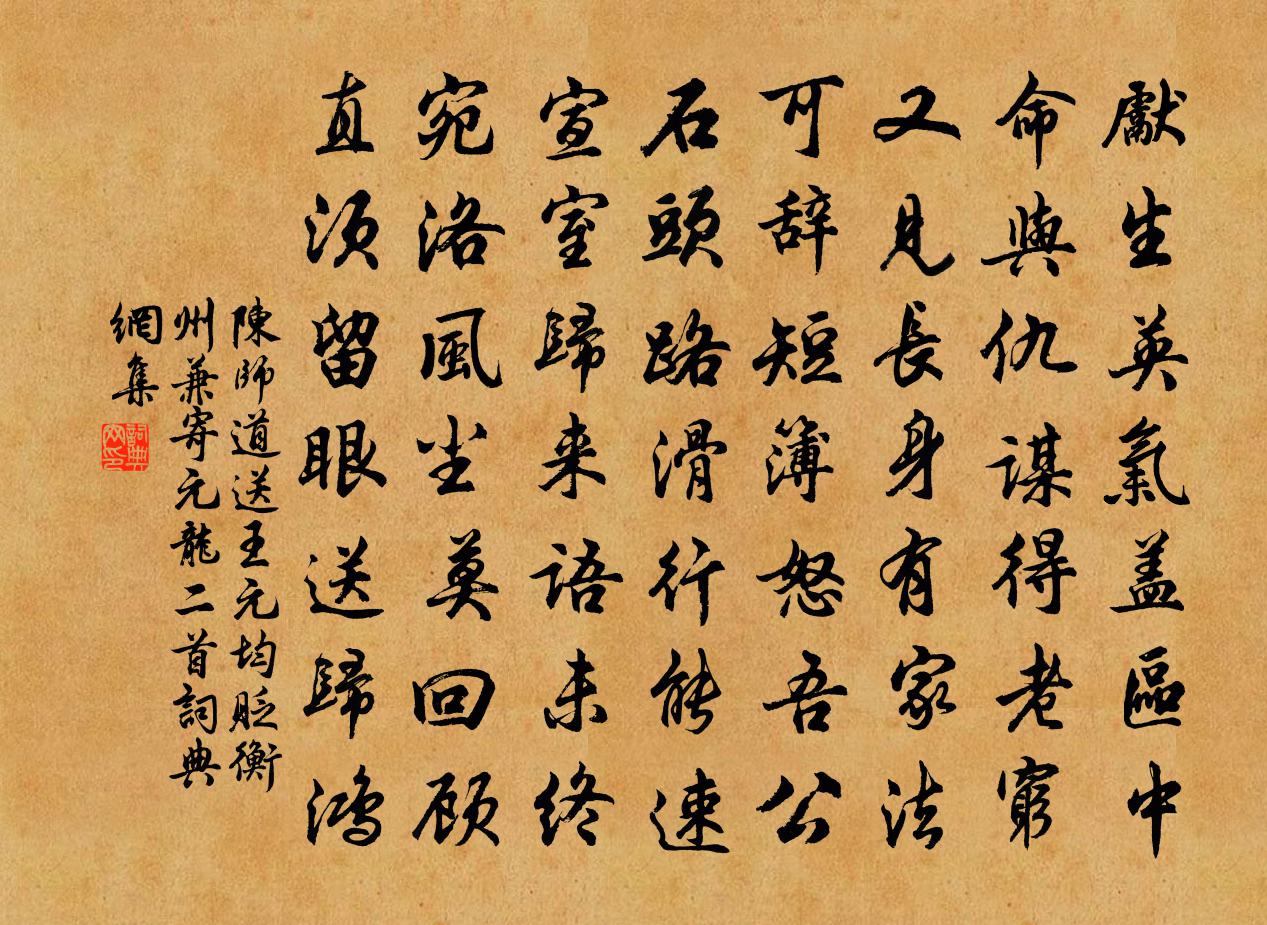 獻生英氣蓋區中
命與仇謀得老窮
又見長身有家法
可辞短簿怒吾公
石頭路滑行能速
宣室歸来語未終
宛洛風尘莫回顾
直须留眼送歸鸿
陳師道送王元均貶衡
州兼寄元龍二首詞典
網集
詞典
网印